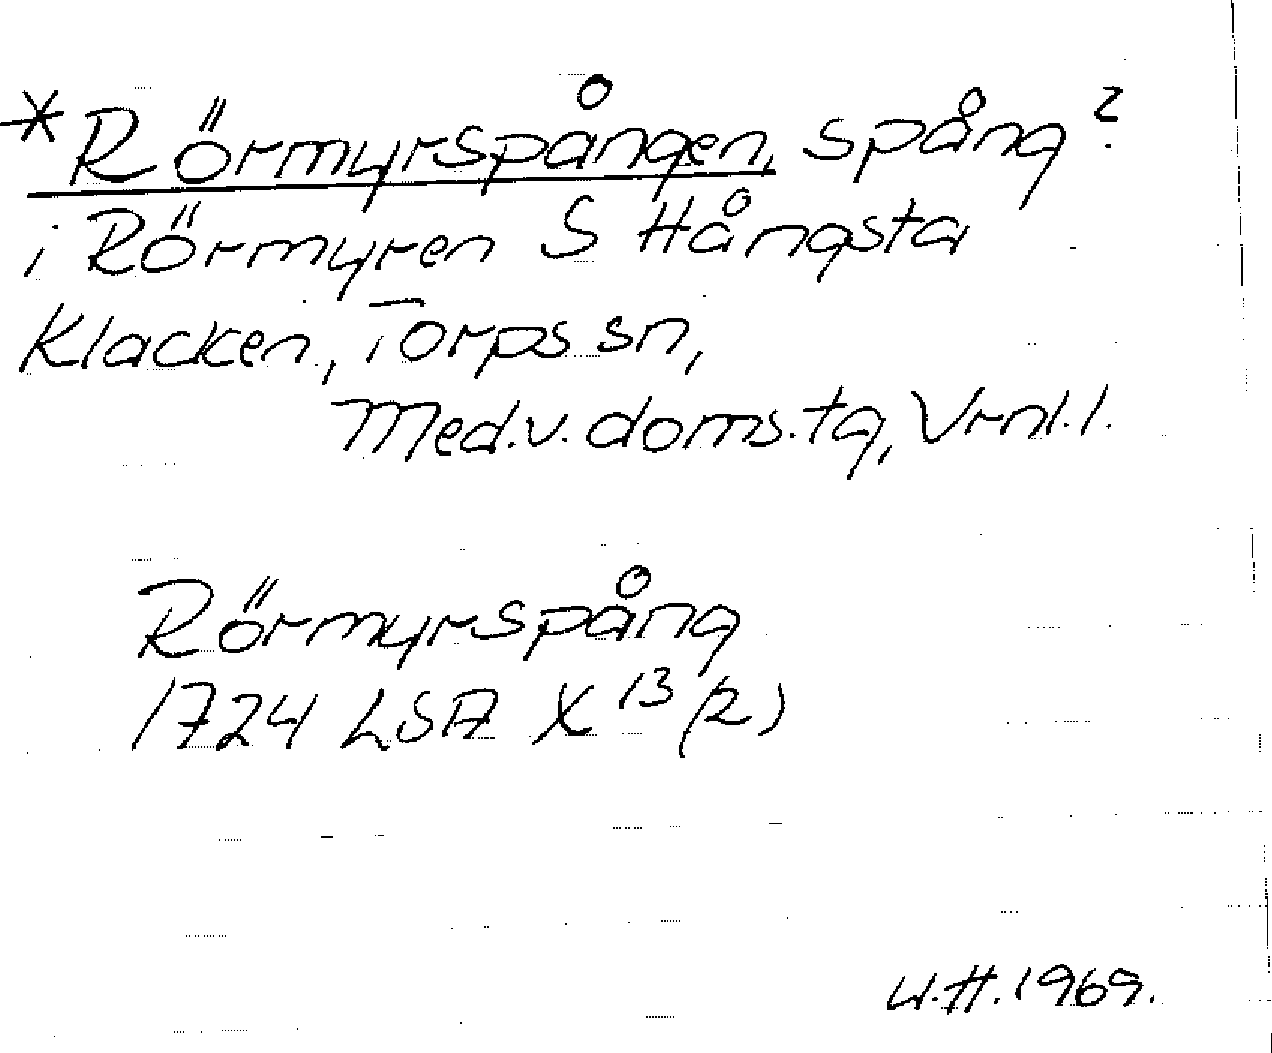 *Rörmyrspången, spång?
i Rörmyren S Hångsta
Klacken, Torps sn,
Med.v.doms.tg, Vrnl.l.
Rörmyrspång
1724 LSA X 13 (2)
U.H. 1969.